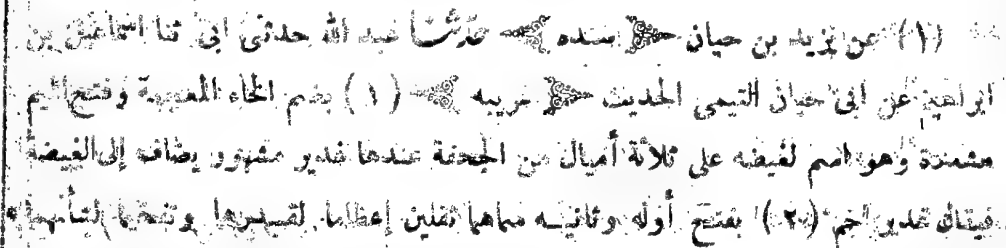 (١) عن يزيد بن حيان ﴿ سنده ﴾ حدثنا عبد الله حدثنى ابى ثنا اسماعيل بن
ابراهيم عن ابى حيان التيمى الحديث ﴿ غريبه ﴾ (١) بضم الخاء المعجمة وفتح الميم
مشددة وهو اسم لغيضه على ثلاثة أميال من الجحفة عندها غدير مشهور يضاف إلى الغيضة
فيقال غدير خم (٢) بفتح أوله وثانيه سماهما ثقلين إعظاما لقدرها وتفخيما لشأنهما